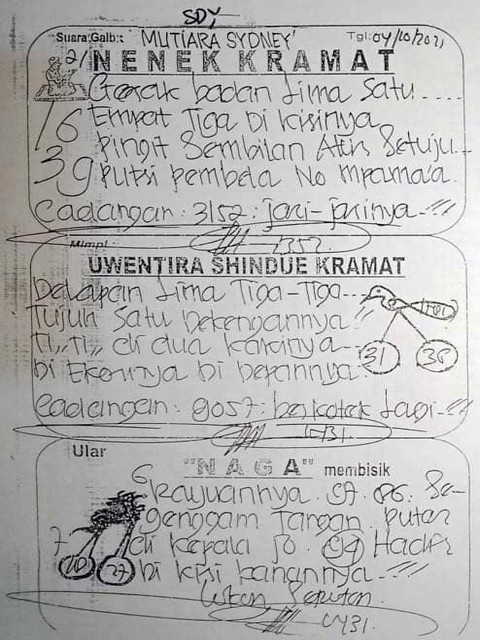 SDY
Suara Galb: 'MUTIARA SYDNEY' Tgl: 04/10/2021
NENEK KRAMAT
Gerak badan Lima Satu ....
16 Empat Tiga Di Kisinya
Pingit Sembilan Atas Setuju
39 Putri Pembela No
Cadangan: 3152: jari-jarinya
1352
Mimpi
UWENTIRA SHINDUE KRAMAT
Delapan Lima Tiga-Tiga
Tujuh Satu Dekengannya
di dua kakinya
31 35
Di Ekornya Di Depannya
Cadangan: 9057: berkotek Lagi
Ular "NAGA" membisik
6
Rayuannya 57. 86. Se-
genggam Tangan putar
7 di Kepala 50. 04 Hadir
27 Di Kisi Kanannya